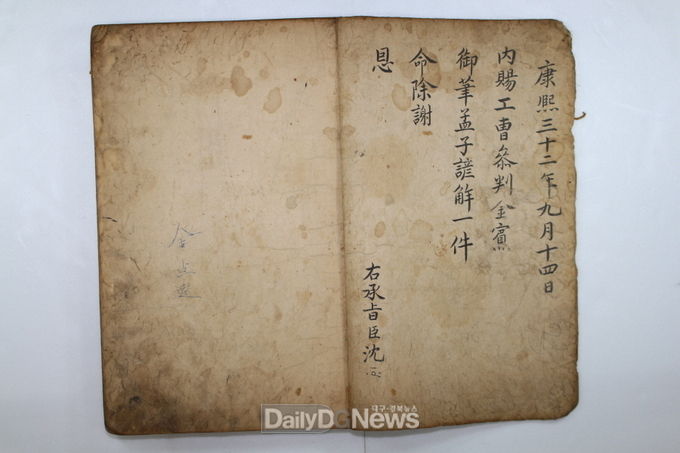 康熙三十二年九月十四日
內賜工曺叅判金賓
御筆孟子諺解一件
命除謝
恩
右承旨臣沈
대구·경북뉴스
DailyDGNews